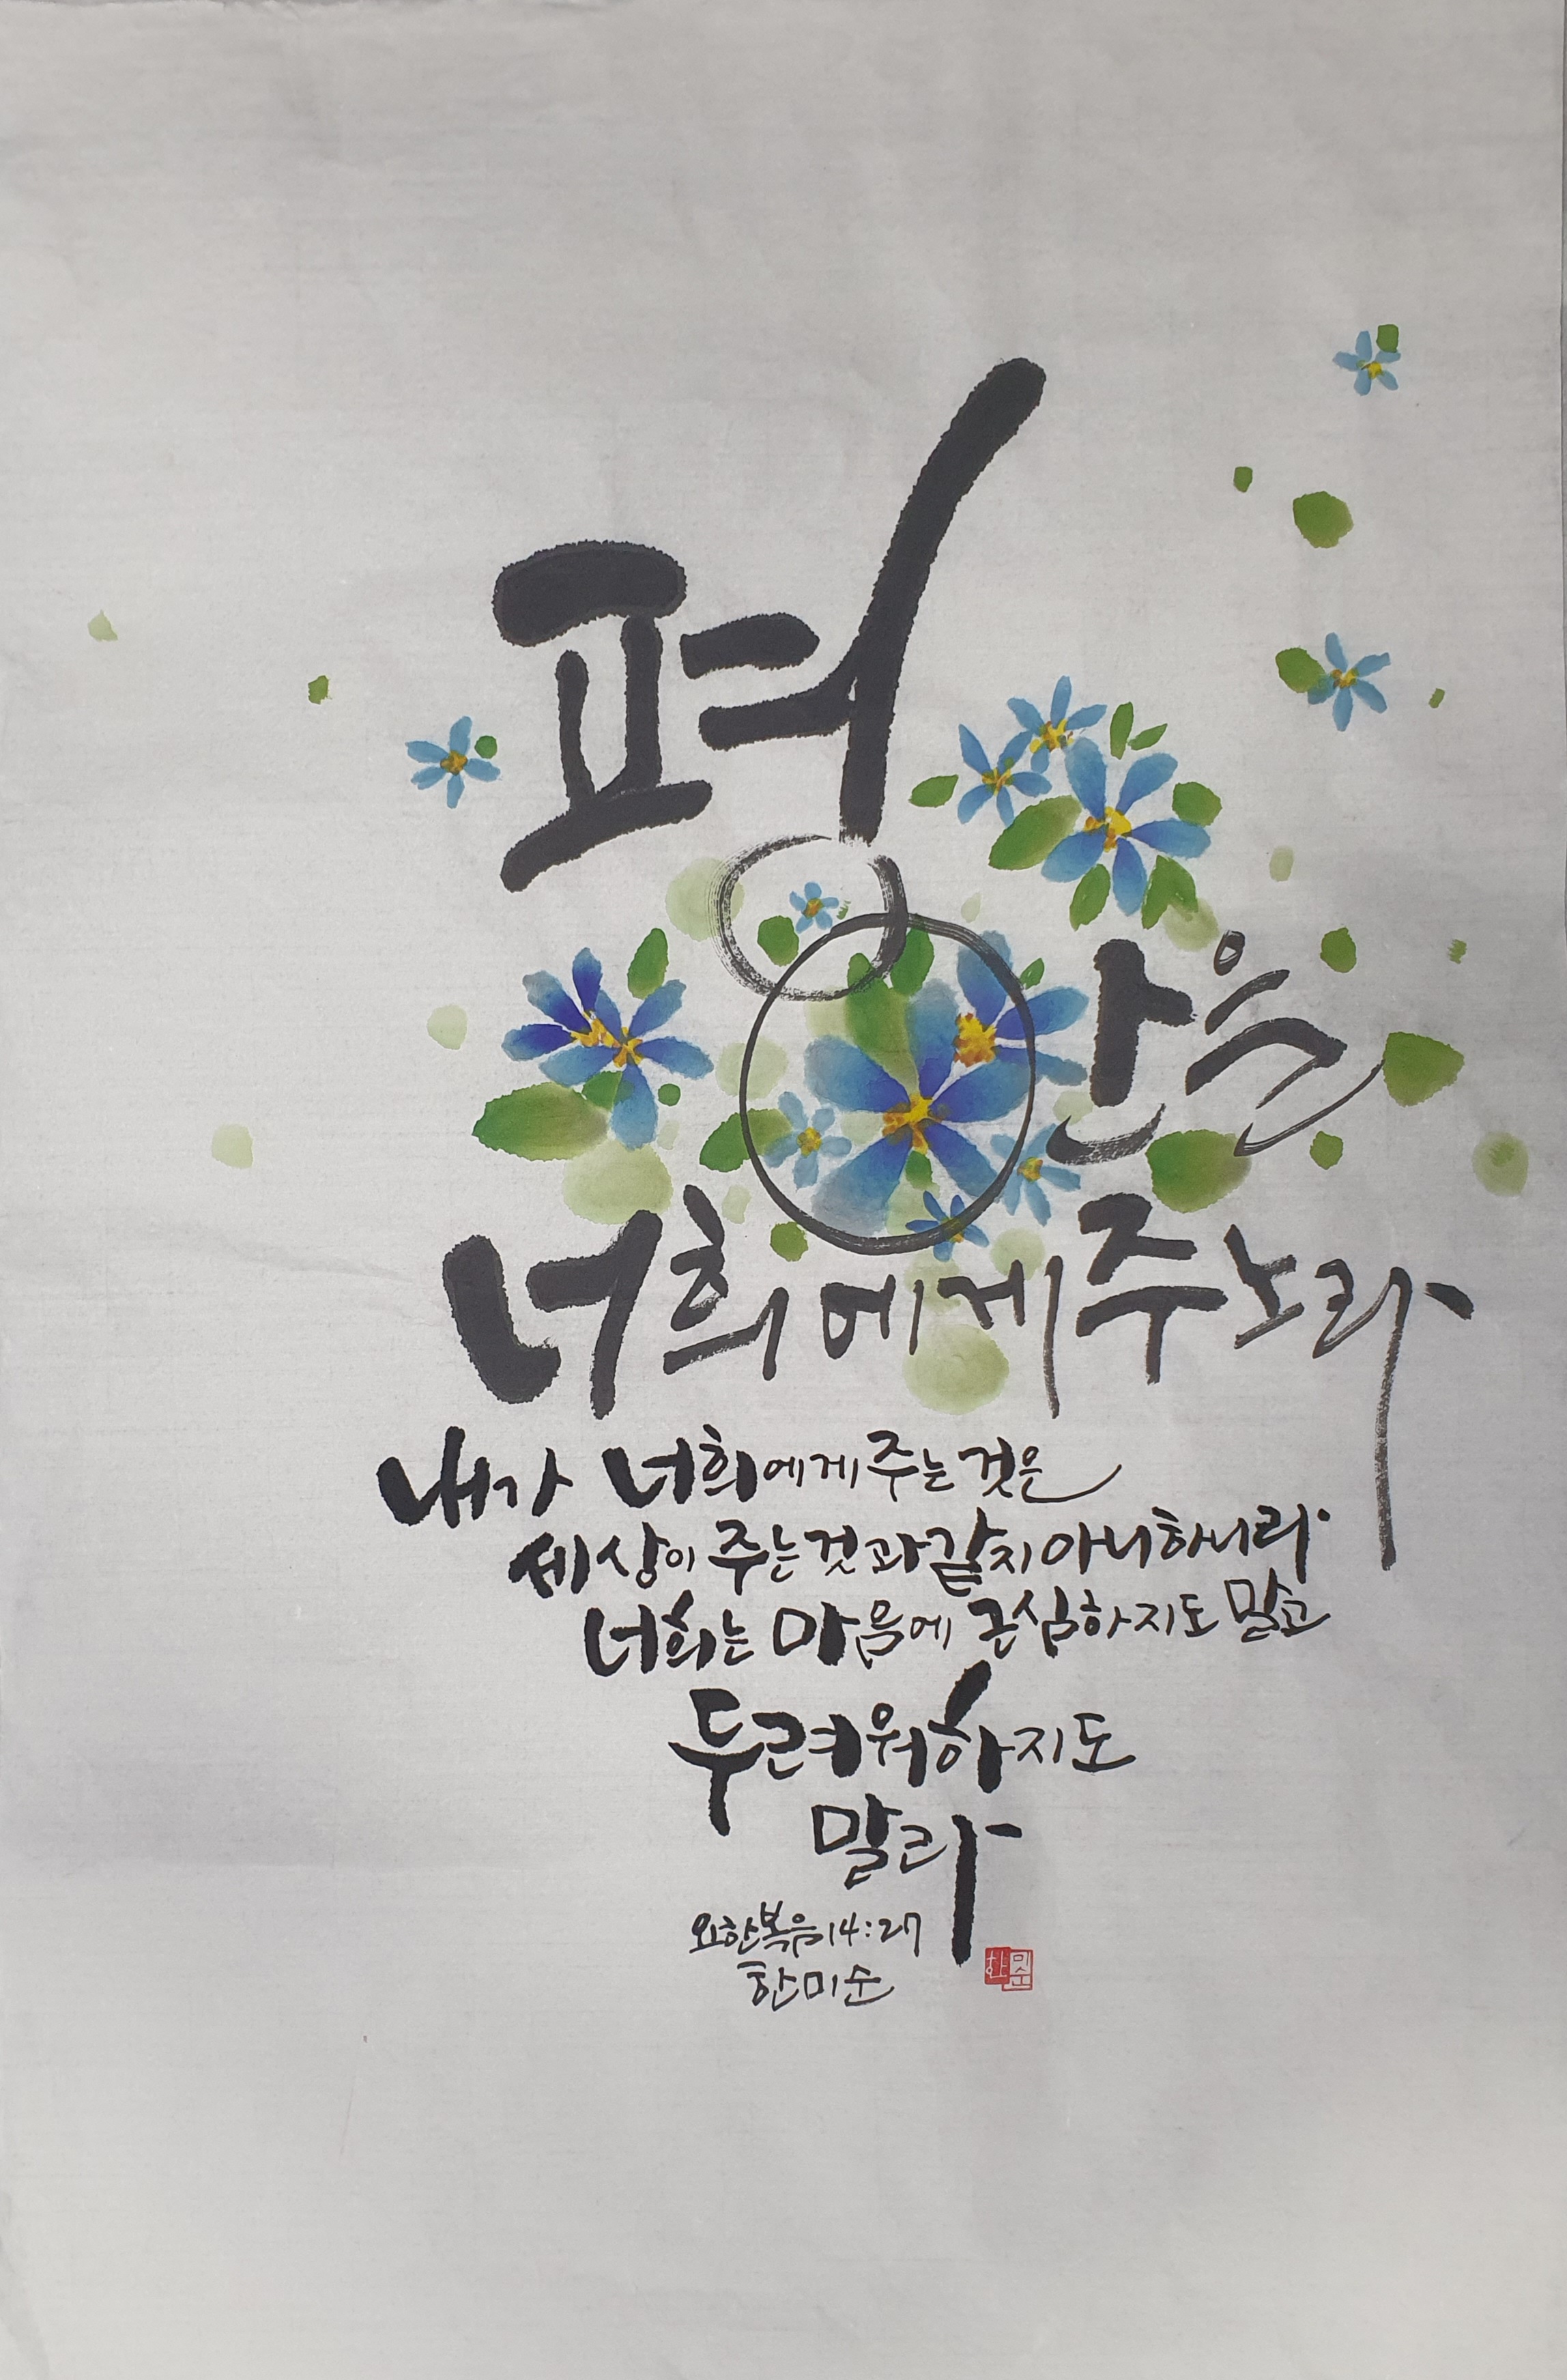 평
안을
너희에게 주노라
내가 너희에게 주는 것은
세상이 주는 것과 같지 아니하니라
너희는 마음에 근심하지도 말고
두려워하지도
말라
요한복음 14:27
한미순
한미순